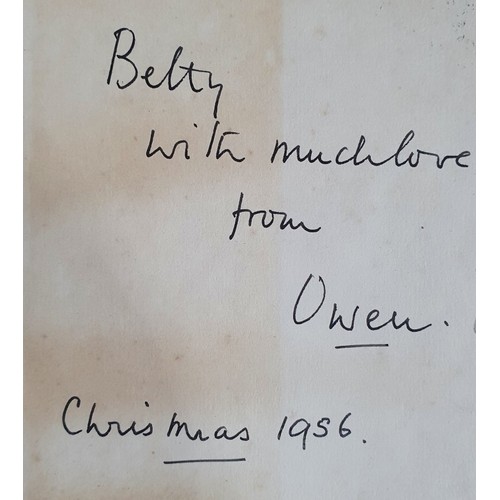 Betty
with much love
from
Owen.
Christmas 1956.